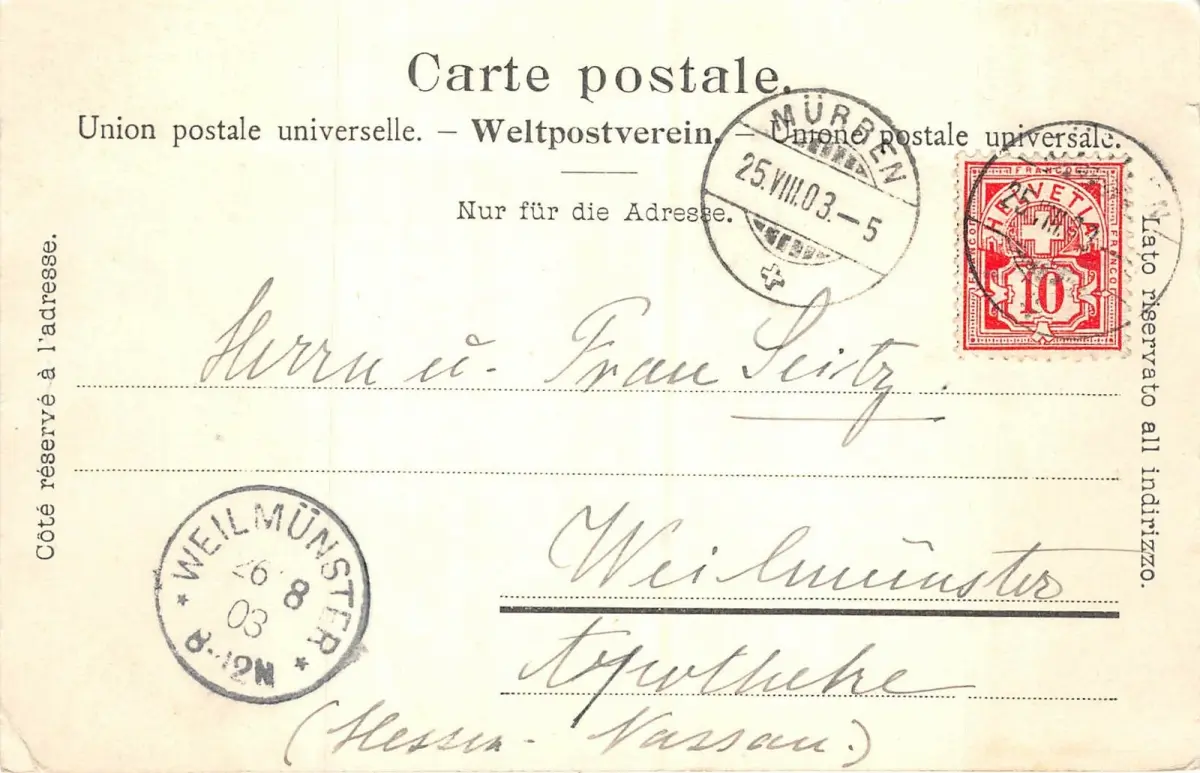 Carte postale.
Union postale universelle. – Weltpostverein. – Unione postale universale.
Nur für die Adresse.
Côté réservé à l'adresse.
Lato riservato all indirizzo.
MÜRREN
25.VIII.03.–5
FRANCO
FRANCO
FRANCO
HELVETIA
10
Herrn u. Frau Seitz.
Weilmünster
Apotheke
(Hessen-Nassau.)
* WEILMÜNSTER *
26 8
03
8-12N